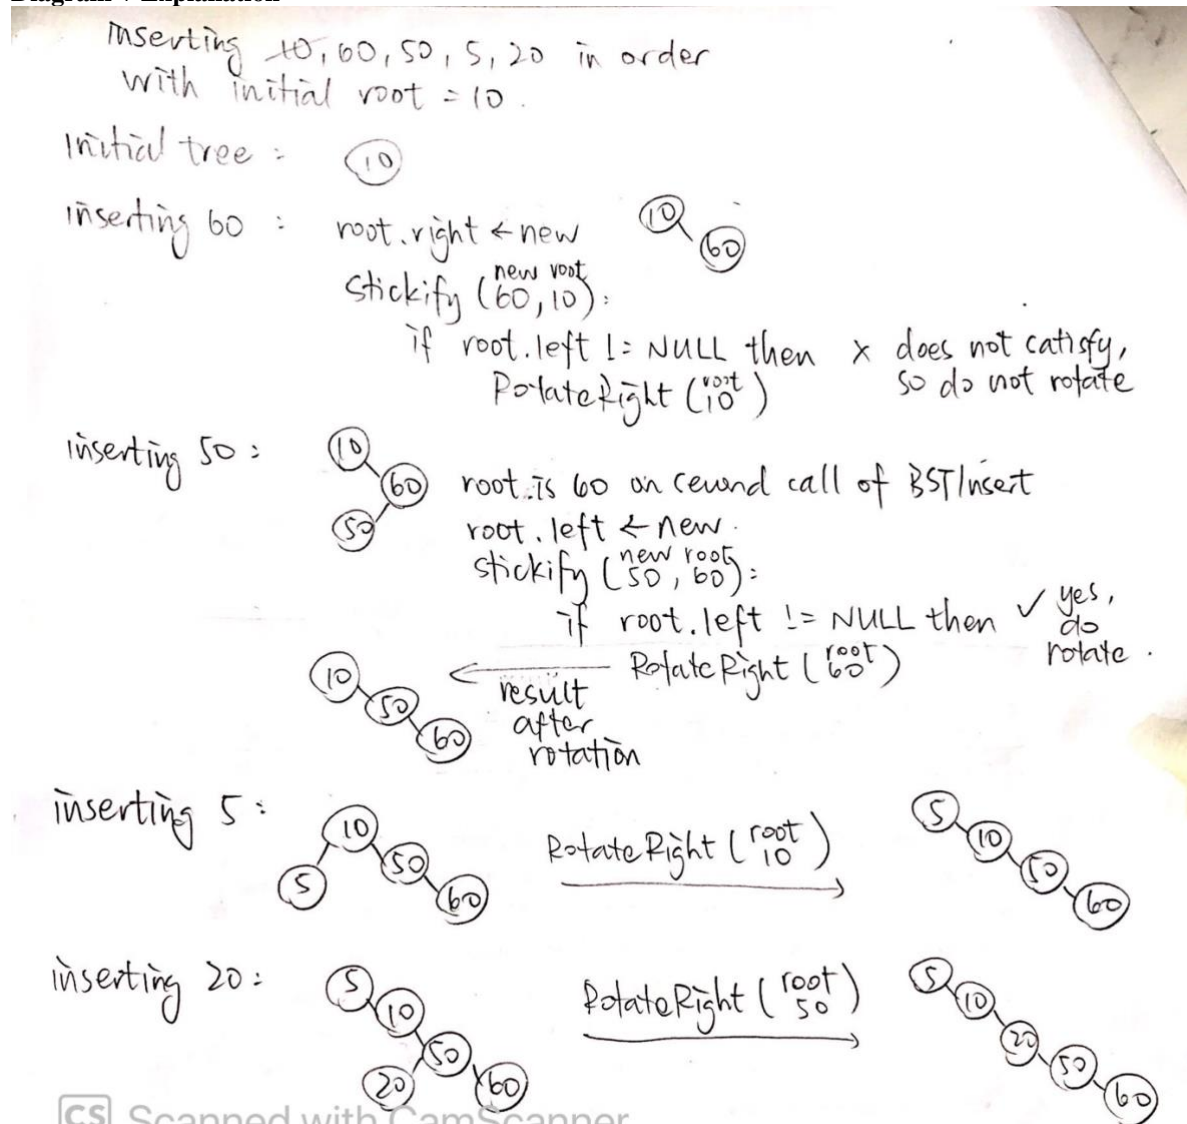 Diagram + Explanation
inserting 10, 60, 50, 5, 20 in order
with initial root = 10.
Initial tree : 10
inserting 60 : root.right ← new 10 60
new root
Stickify (60, 10):
if root.left != NULL then × does not catisfy,
RotateRight (root 10) so do not rotate
inserting 50 : 10 60 50
root is 60 on cecond call of BSTInsert
root.left ← new.
new root
stickify (50, 60):
if root.left != NULL then ✓ yes, do rotate.
RotateRight (root 60)
result after rotation
10 50 60
inserting 5 : 10 5 50 60 RotateRight (root 10) 5 10 50 60
inserting 20 : 5 10 50 20 60 RotateRight (root 50) 5 10 20 50 60
CS Scanned with CamScanner